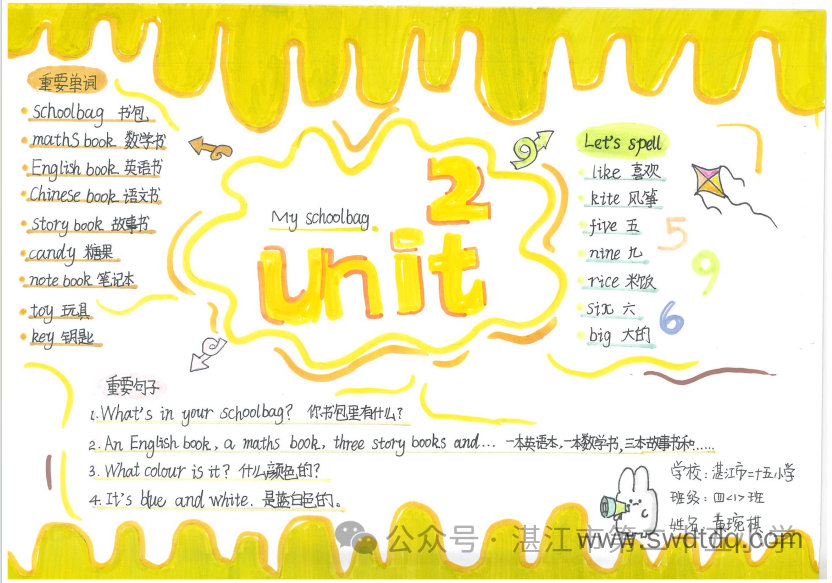 重要单词
schoolbag 书包
maths book 数学书
English book 英语书
Chinese book 语文书
story book 故事书
candy 糖果
note book 笔记本
toy 玩具
key 钥匙
My schoolbag.
2
unit
Let's spell
like 喜欢
kite 风筝
five 五
nine 九
rice 米饭
six 六
big 大的
5
9
6
重要句子
1. What's in your schoolbag? 你书包里有什么?
2. An English book, a maths book, three story books and... 一本英语本,一本数学书,三本故事书和……
3. What colour is it? 什么颜色的?
4. It's blue and white. 是蓝白色的。
学校:湛江市二十五小学
班级:四<1>班
姓名:黄琬棋
公众号·湛江市第二十五小学
www.swdtdq.com